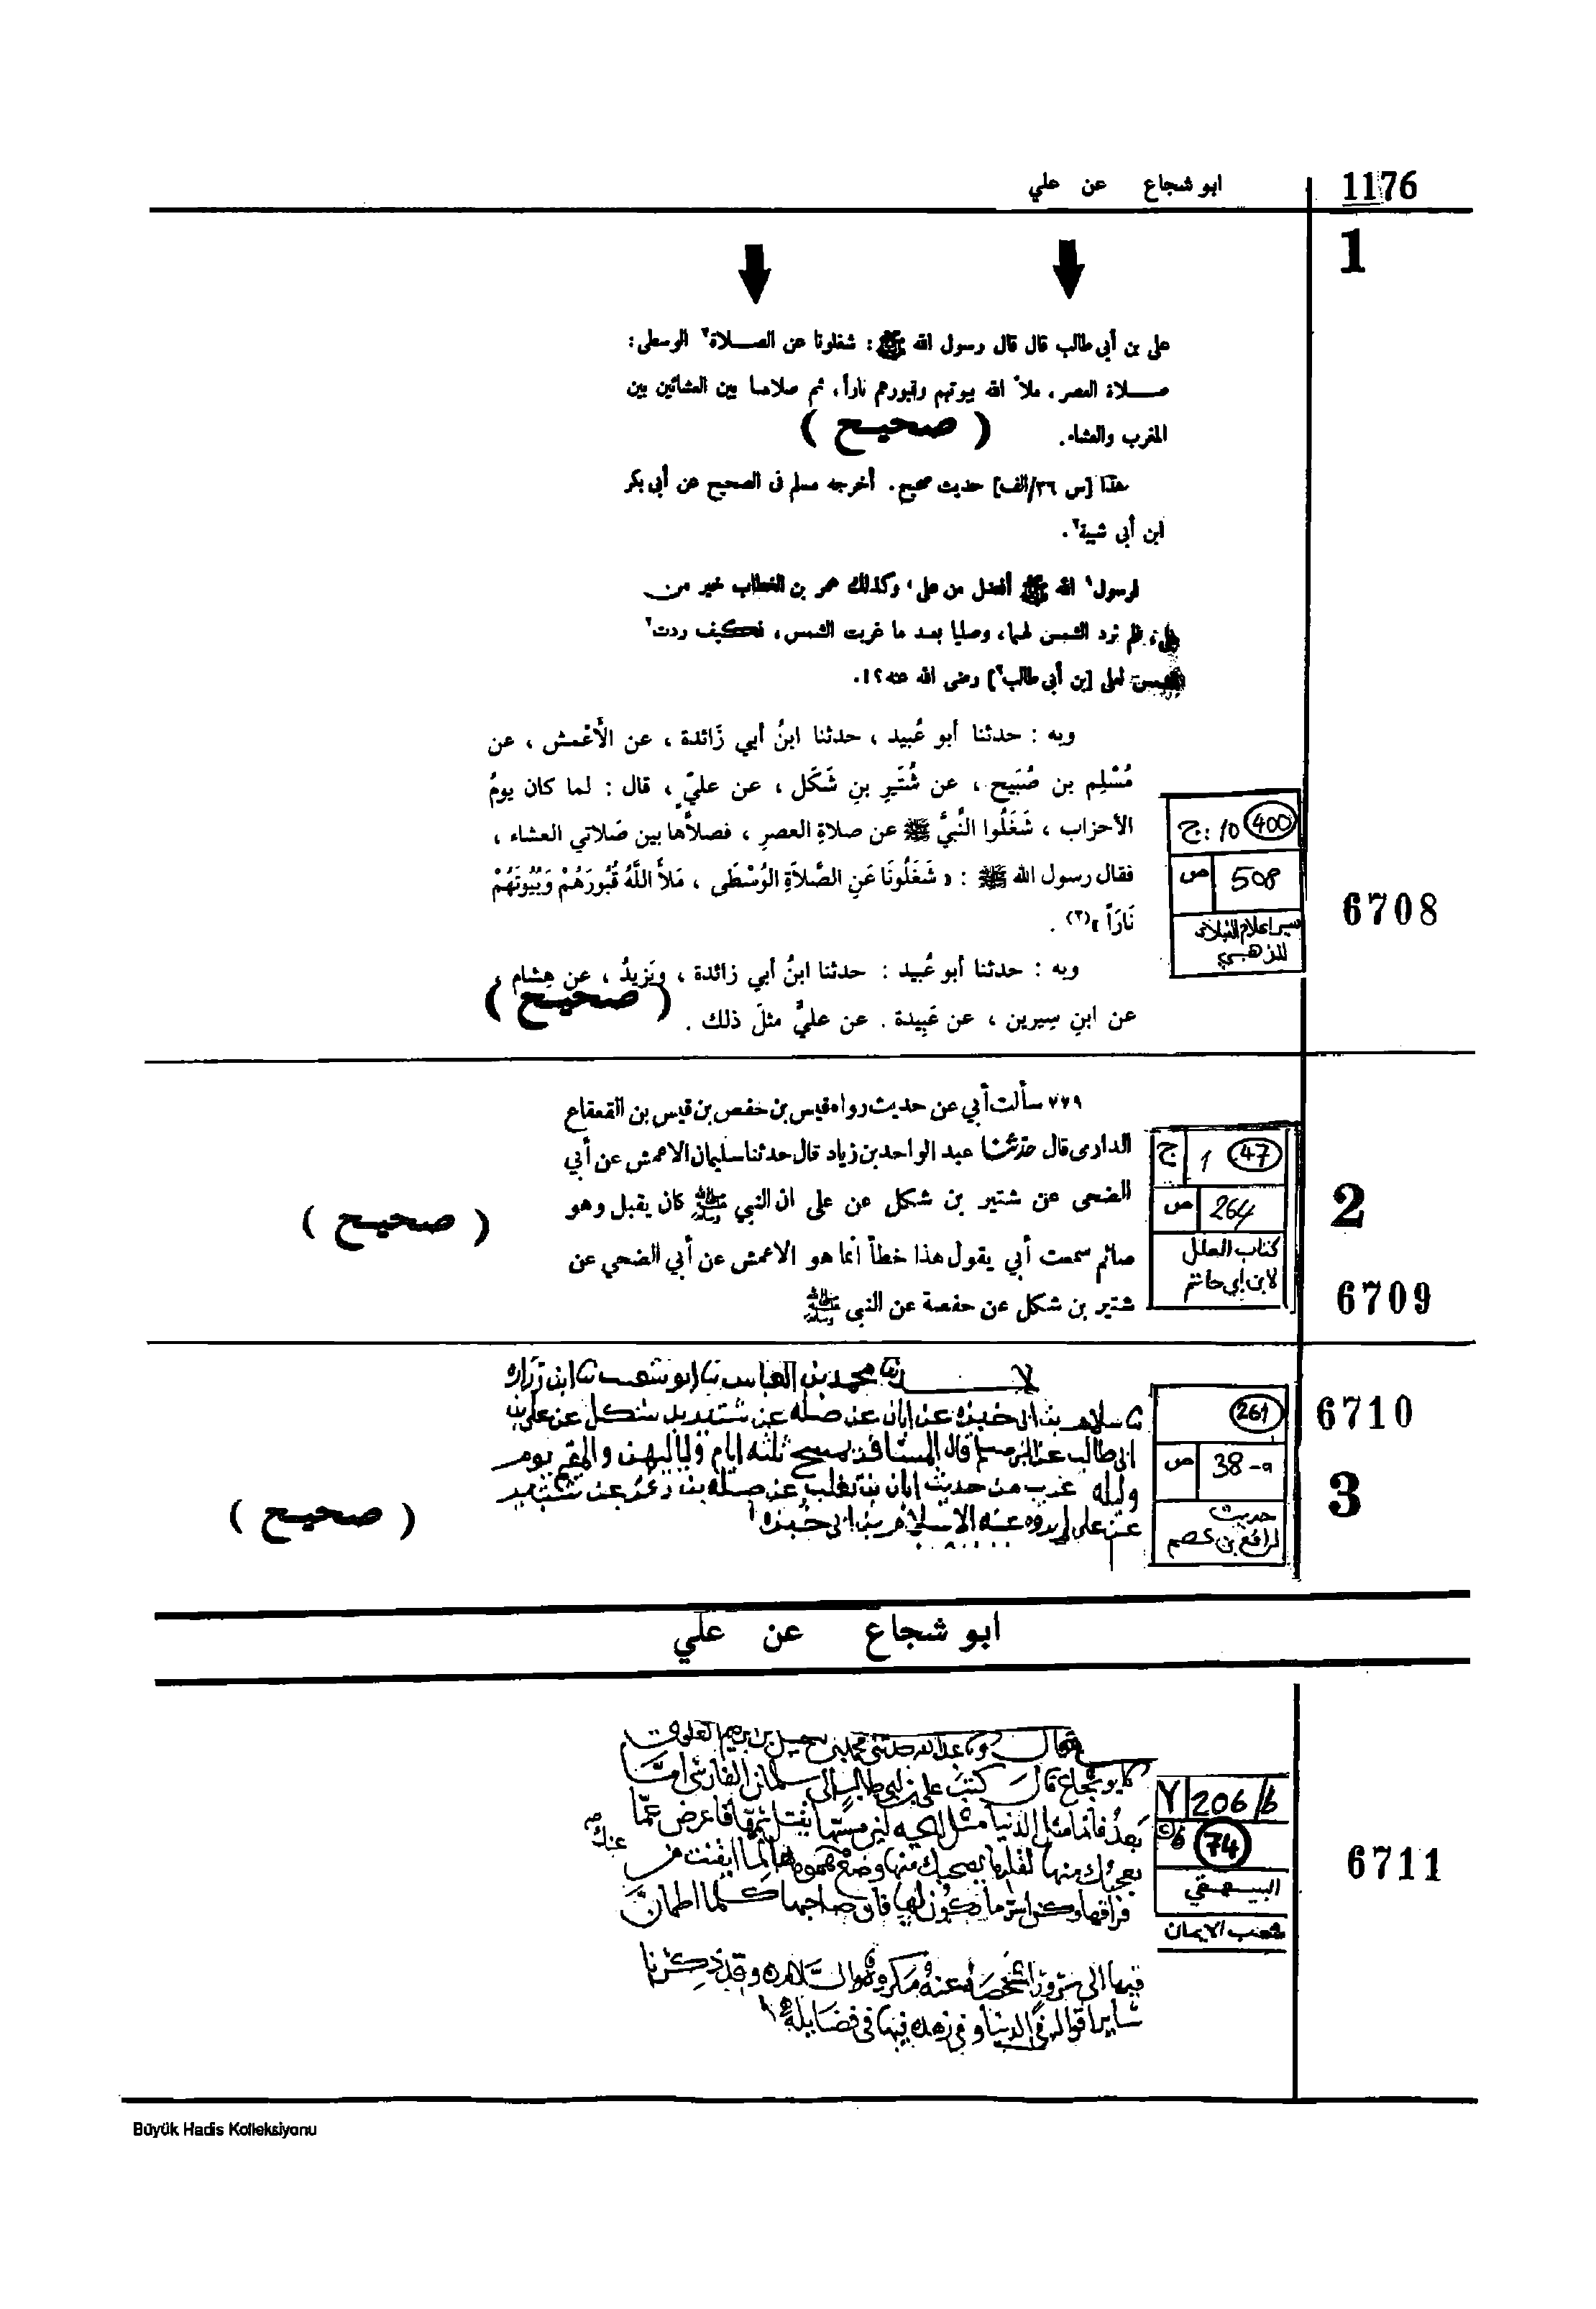 1176
ابو شجاع عن علي
1
علي بن أبي طالب قال قال رسول الله ﷺ: شغلونا عن الصلاة٢ الوسطى:
صلاة العصر، ملأ الله بيوتهم وقبورهم ناراً، ثم صلاها بين العشائين بين
المغرب والعشاء.
( صحيح )
هذا [س ٣٦/الف] حديث صحيح. أخرجه مسلم فى الصحيح عن أبى بكر
ابن أبى شيبة٣.
لرسول١ الله ﷺ أفضل من على، وكذلك عمر بن الخطاب خير من
على، فلم ترد الشمس لهما، وصليا بعد ما غربت الشمس، فكيف ردت٢
الشمس لعلى [بن أبى طالب٣] رضى الله عنه؟!.
وبه : حدثنا أبو عُبيد ، حدثنا ابنُ أبي زَائدة ، عن الأَعْمش ، عن
مُسْلِم بن صُبَيح ، عن شُتَيرِ بنِ شَكَل ، عن عليٍّ ، قال : لما كان يومُ
الأحزاب ، شَغَلُوا النَّبيَّ ﷺ عن صلاةِ العصرِ ، فصلاَّها بين صَلاتي العشاء ،
فقال رسول الله ﷺ : « شَغَلُونَا عَنِ الصَّلاَةِ الوُسْطَى ، مَلأَ اللَّهُ قُبُورَهُمْ وَبُيُوتَهُمْ
نَاراً »(٣) .
ج: 10 400
ص 508
سير اعلام النبلاء
للذهبي
6708
وبه : حدثنا أبو عُبيد : حدثنا ابنُ أبي زائدة ، ويَزيدُ ، عن هِشام ،
عن ابنِ سِيرين ، عن عَبِيدة . عن عليٍّ مثلَ ذلك .
( صحيح )
٧٧٩ سألت أبي عن حديث رواه قيس بن حفص بن قيس بن القعقاع
الدارى قال حدثنا عبد الواحد بن زياد قال حدثنا سليمان الاعمش عن أبي
الضحى عن شتير بن شكل عن على ان النبي ﷺ كان يقبل وهو
صائم سمعت أبي يقول هذا خطأ انما هو الاعمش عن أبي الضحي عن
شتير بن شكل عن حفصة عن النبى ﷺ
( صحيح )
ج 1 47
ص 264
كتاب العلل
لابن ابي حاتم
2
6709
محمد بن العباس
عن ابان عن صله عن شتير بن شكل عن علي بن
ابي طالب عن النبي صلعم قال المسافر يمسح ثلثه ايام ولياليهن والمقيم يوم
وليله غريب من حديث ابان بن تغلب عن صله بن زفر عن شتير
عن علي لم يروه عنه الا سلام بن ابي خبزه
( صحيح )
261
ص 38-a
حديث
6710
3
ابو شجاع عن علي
ابو شجاع قال كتب علي بن ابي طالب الى سلمان الفارسي اما
بعد فانما مثل الدنيا مثل الحيه لين مسها يقتل سمها فاعرض عما
يعجبك منها لقله ما يصحبك منها وضع عنك همومها لما ايقنت من
فراقها وكن اسر ما تكون لها فان صاحبها كلما اطمان
فيها الى سرور اشخصه عنه مكروه والسلام وقد ذكرنا
ساير اقواله في الدنيا وفي زهده فيها في فضايله
Y 206/b
74
البيهقي
شعب الايمان
6711
Büyük Hadis Kolleksiyonu